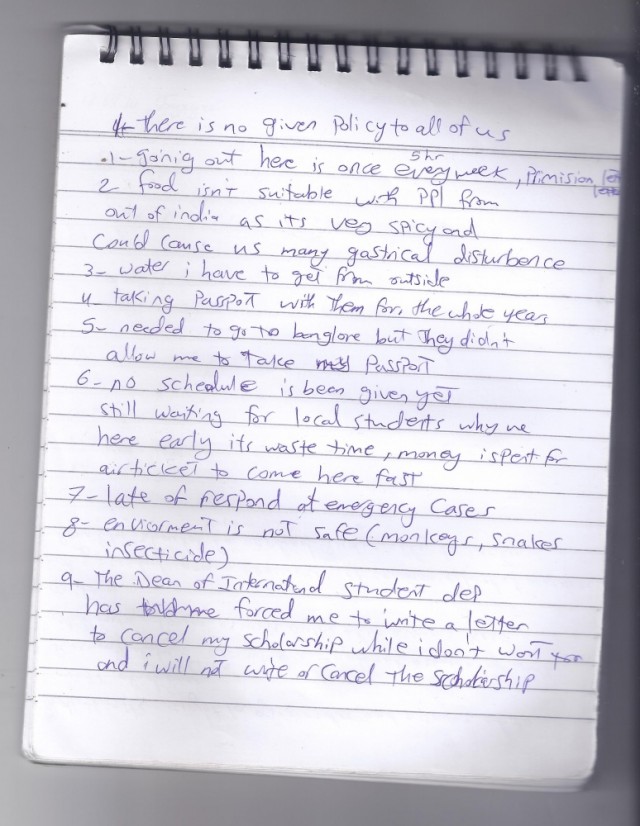 there is no given Policy to all of us
.1- going out here is once every week, Primision
5hr
2 food isn't suitable with PPl from
out of india as its veg spicy and
Could cause us many gastrical disturbence
3- water i have to get from outside
4- taking Passport with them for the whole year
5- needed to go to banglore but they didn't
allow me to take my Passport
6- no schedule is been given yet
still waiting for local students why we
here early its waste time, money ispent for
airticket to come here fast
7- late of respond at emergency Cases
8- enviorment is not safe (monkeys, snakes
insecticide)
9- The Dean of International student dep
has forced me to write a letter
to cancel my scholarship while i don't wont
and i will not write or cancel the scholarship